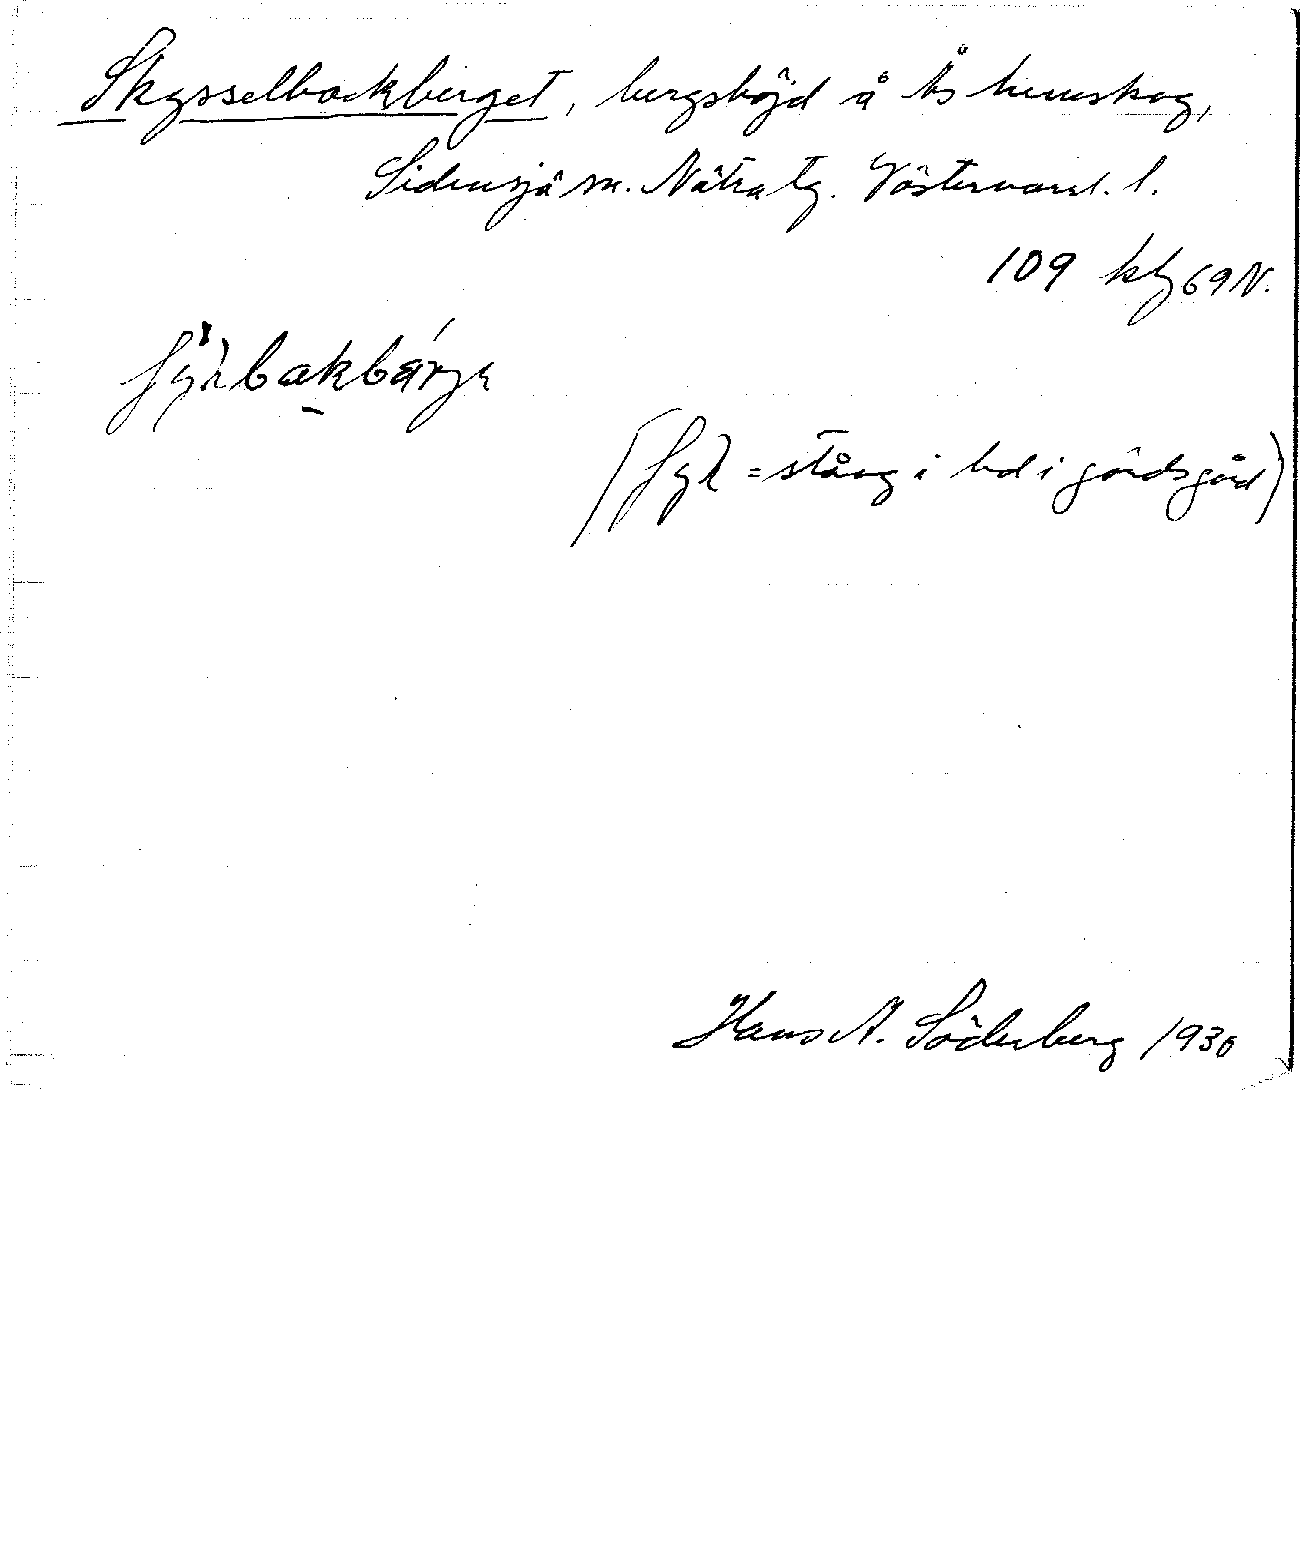 Skysselbackberget, bergshöjd å Ås hemskog,
Sidensjö sn. Nätra tg. Västernorrl. l.
109 kbl 69 N.
(= stång i led i gärdsgård)
Hans A. Söderberg 1930